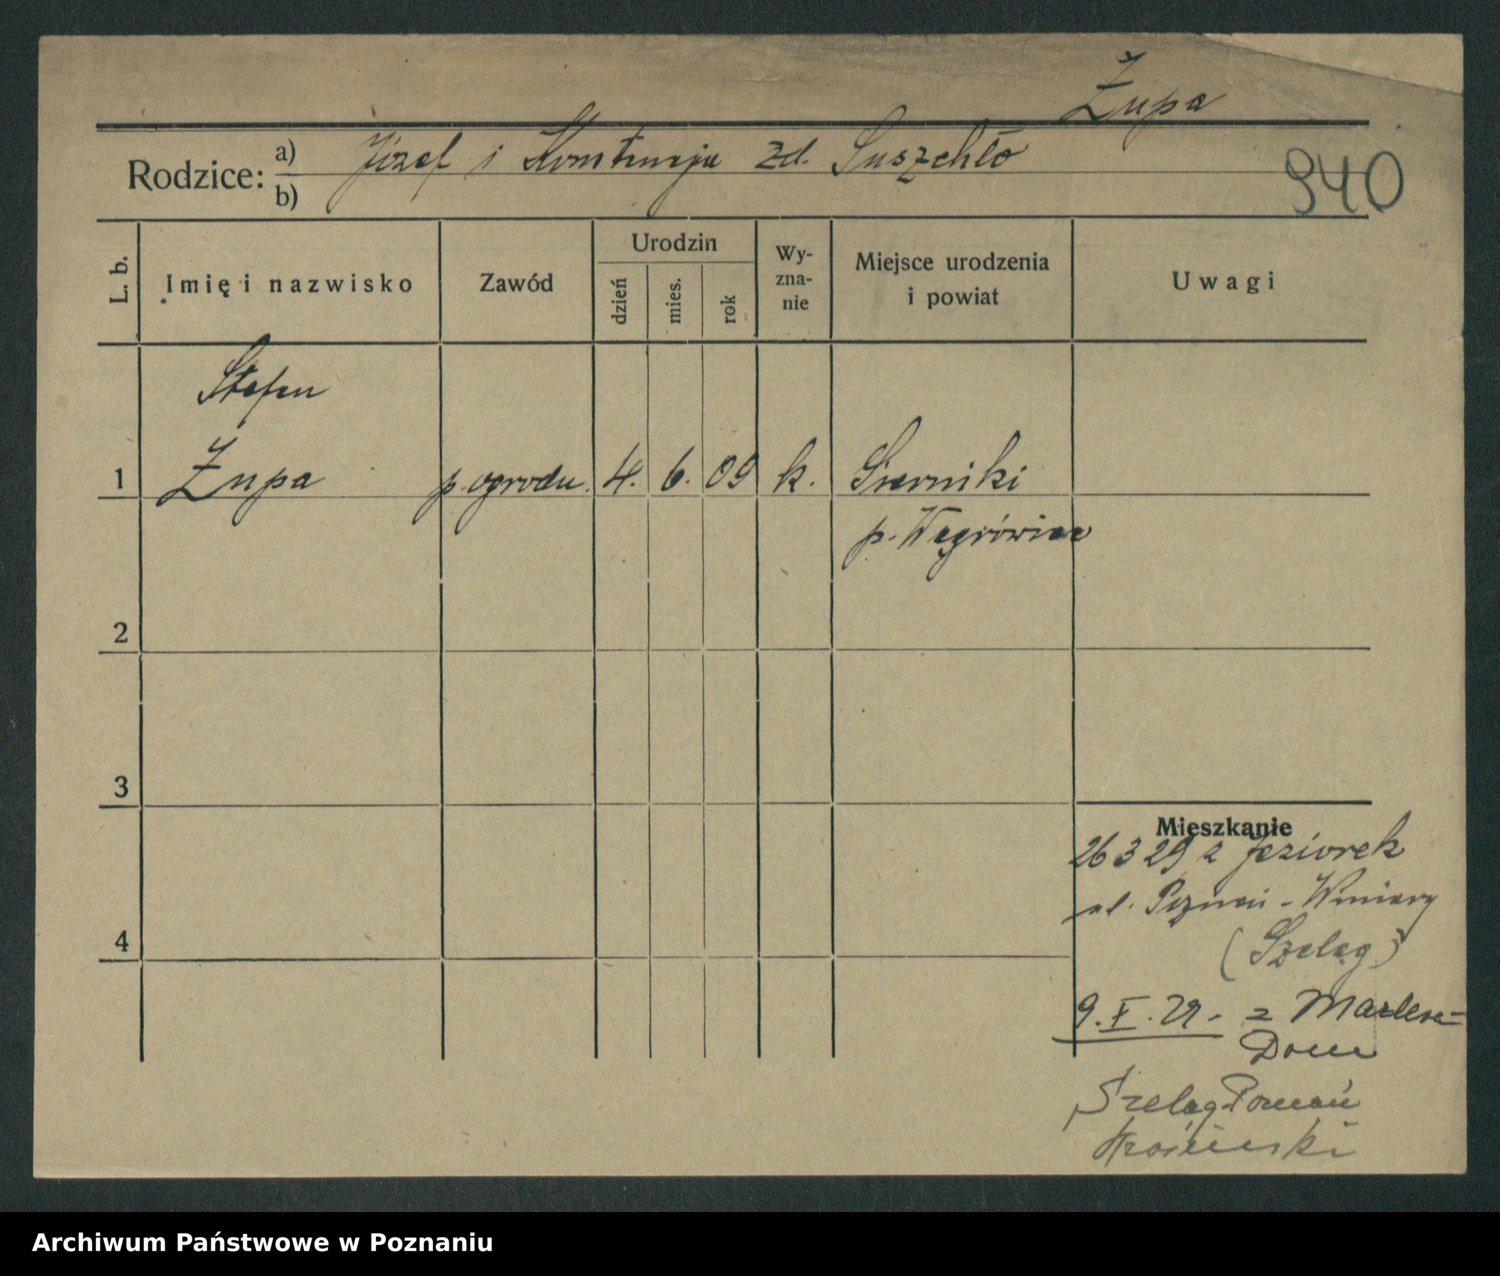 Żupa
Rodzice: a) Józef i Konstancja zd. Suszchło
b)
940
L. b.
Imię i nazwisko
Zawód
Urodzin
dzień
mies.
rok
Wy-
zna-
nie
Miejsce urodzenia
i powiat
Uwagi
Stefan
1 Żupa p. ogrodu. 4. 6. 09 k. Sierniki
p. Wągrówiec
2
3
4
Mieszkanie
26 3 29 z Jeziorek
ul. Poznań - Winiary
(Szeląg)
9. X. 29. - z
Dom
Szeląg-Poznań
Archiwum Państwowe w Poznaniu